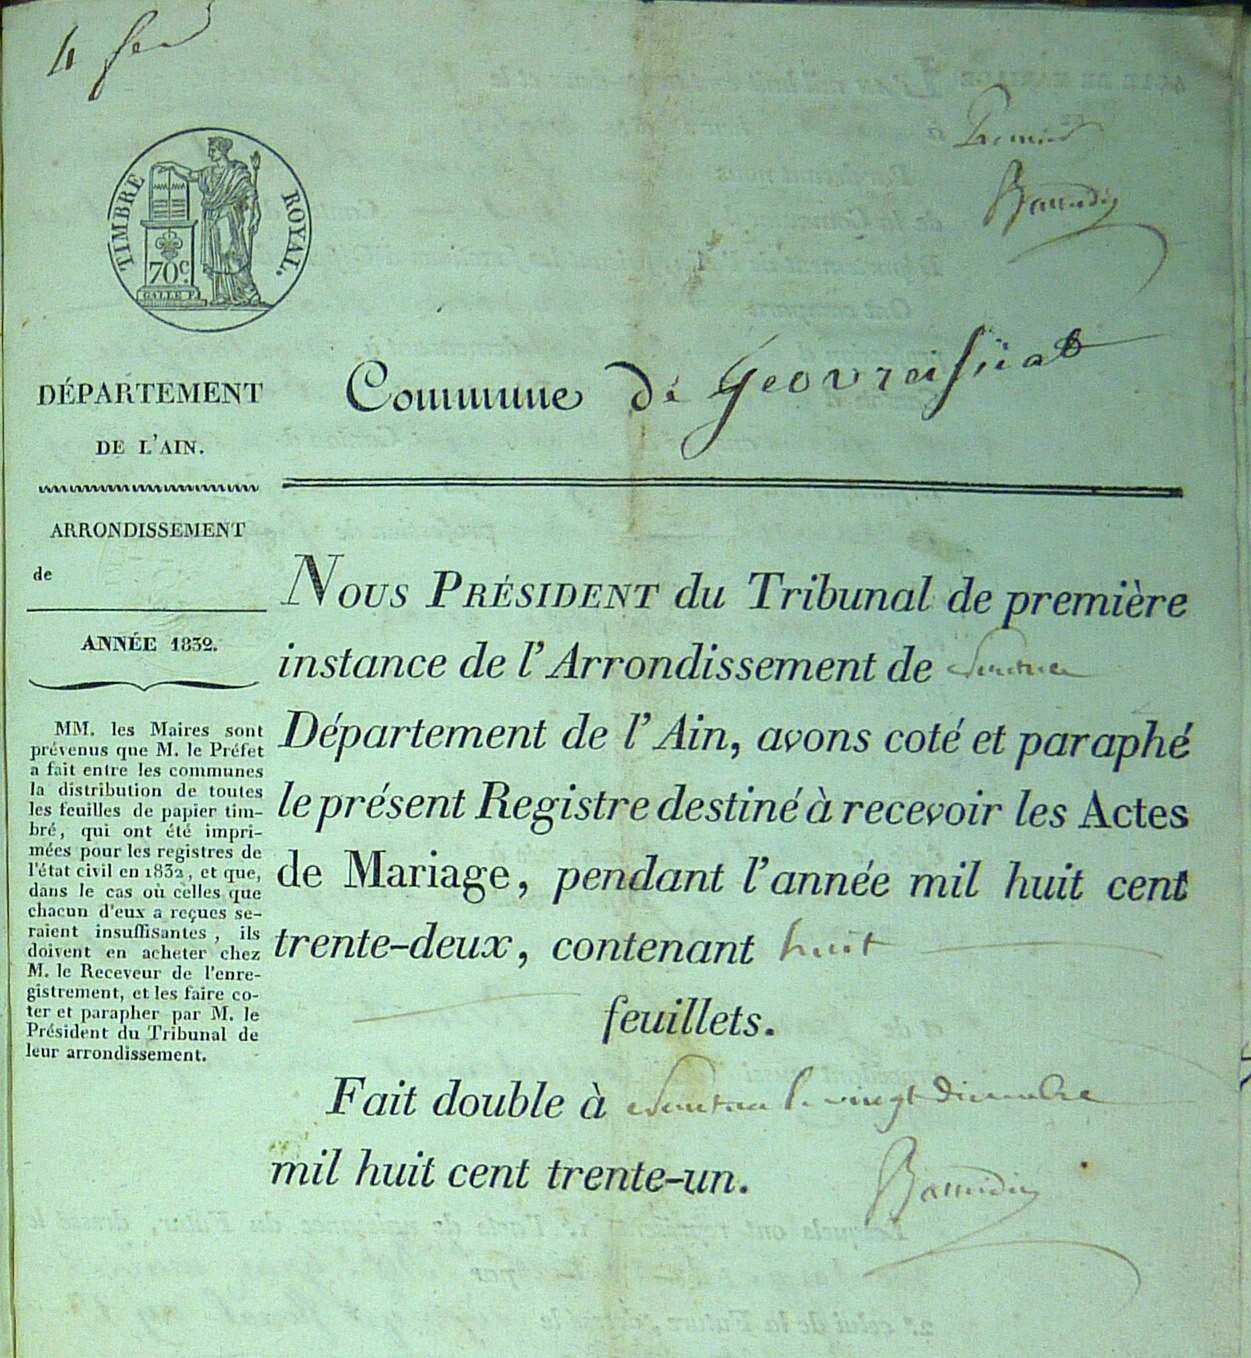 4 feu
Premier
TIMBRE ROYAL.
70c.
GALLE F.
DÉPARTEMENT
DE L'AIN.
Commune de Geovreissiat
ARRONDISSEMENT
de
ANNÉE 1832.
MM. les Maires sont
prévenus que M. le Préfet
a fait entre les communes
la distribution de toutes
les feuilles de papier tim-
bré, qui ont été impri-
mées pour les registres de
l'état civil en 1832, et que,
dans le cas où celles que
chacun d'eux a reçues se-
raient insuffisantes, ils
doivent en acheter chez
M. le Receveur de l'enre-
gistrement, et les faire co-
ter et parapher par M. le
Président du Tribunal de
leur arrondissement.
NOUS PRÉSIDENT du Tribunal de première
instance de l'Arrondissement de Nantua
Département de l'Ain, avons coté et paraphé
le présent Registre destiné à recevoir les Actes
de Mariage, pendant l'année mil huit cent
trente-deux, contenant huit
feuillets.
Fait double à Nantua le vingt Decembre
mil huit cent trente-un.